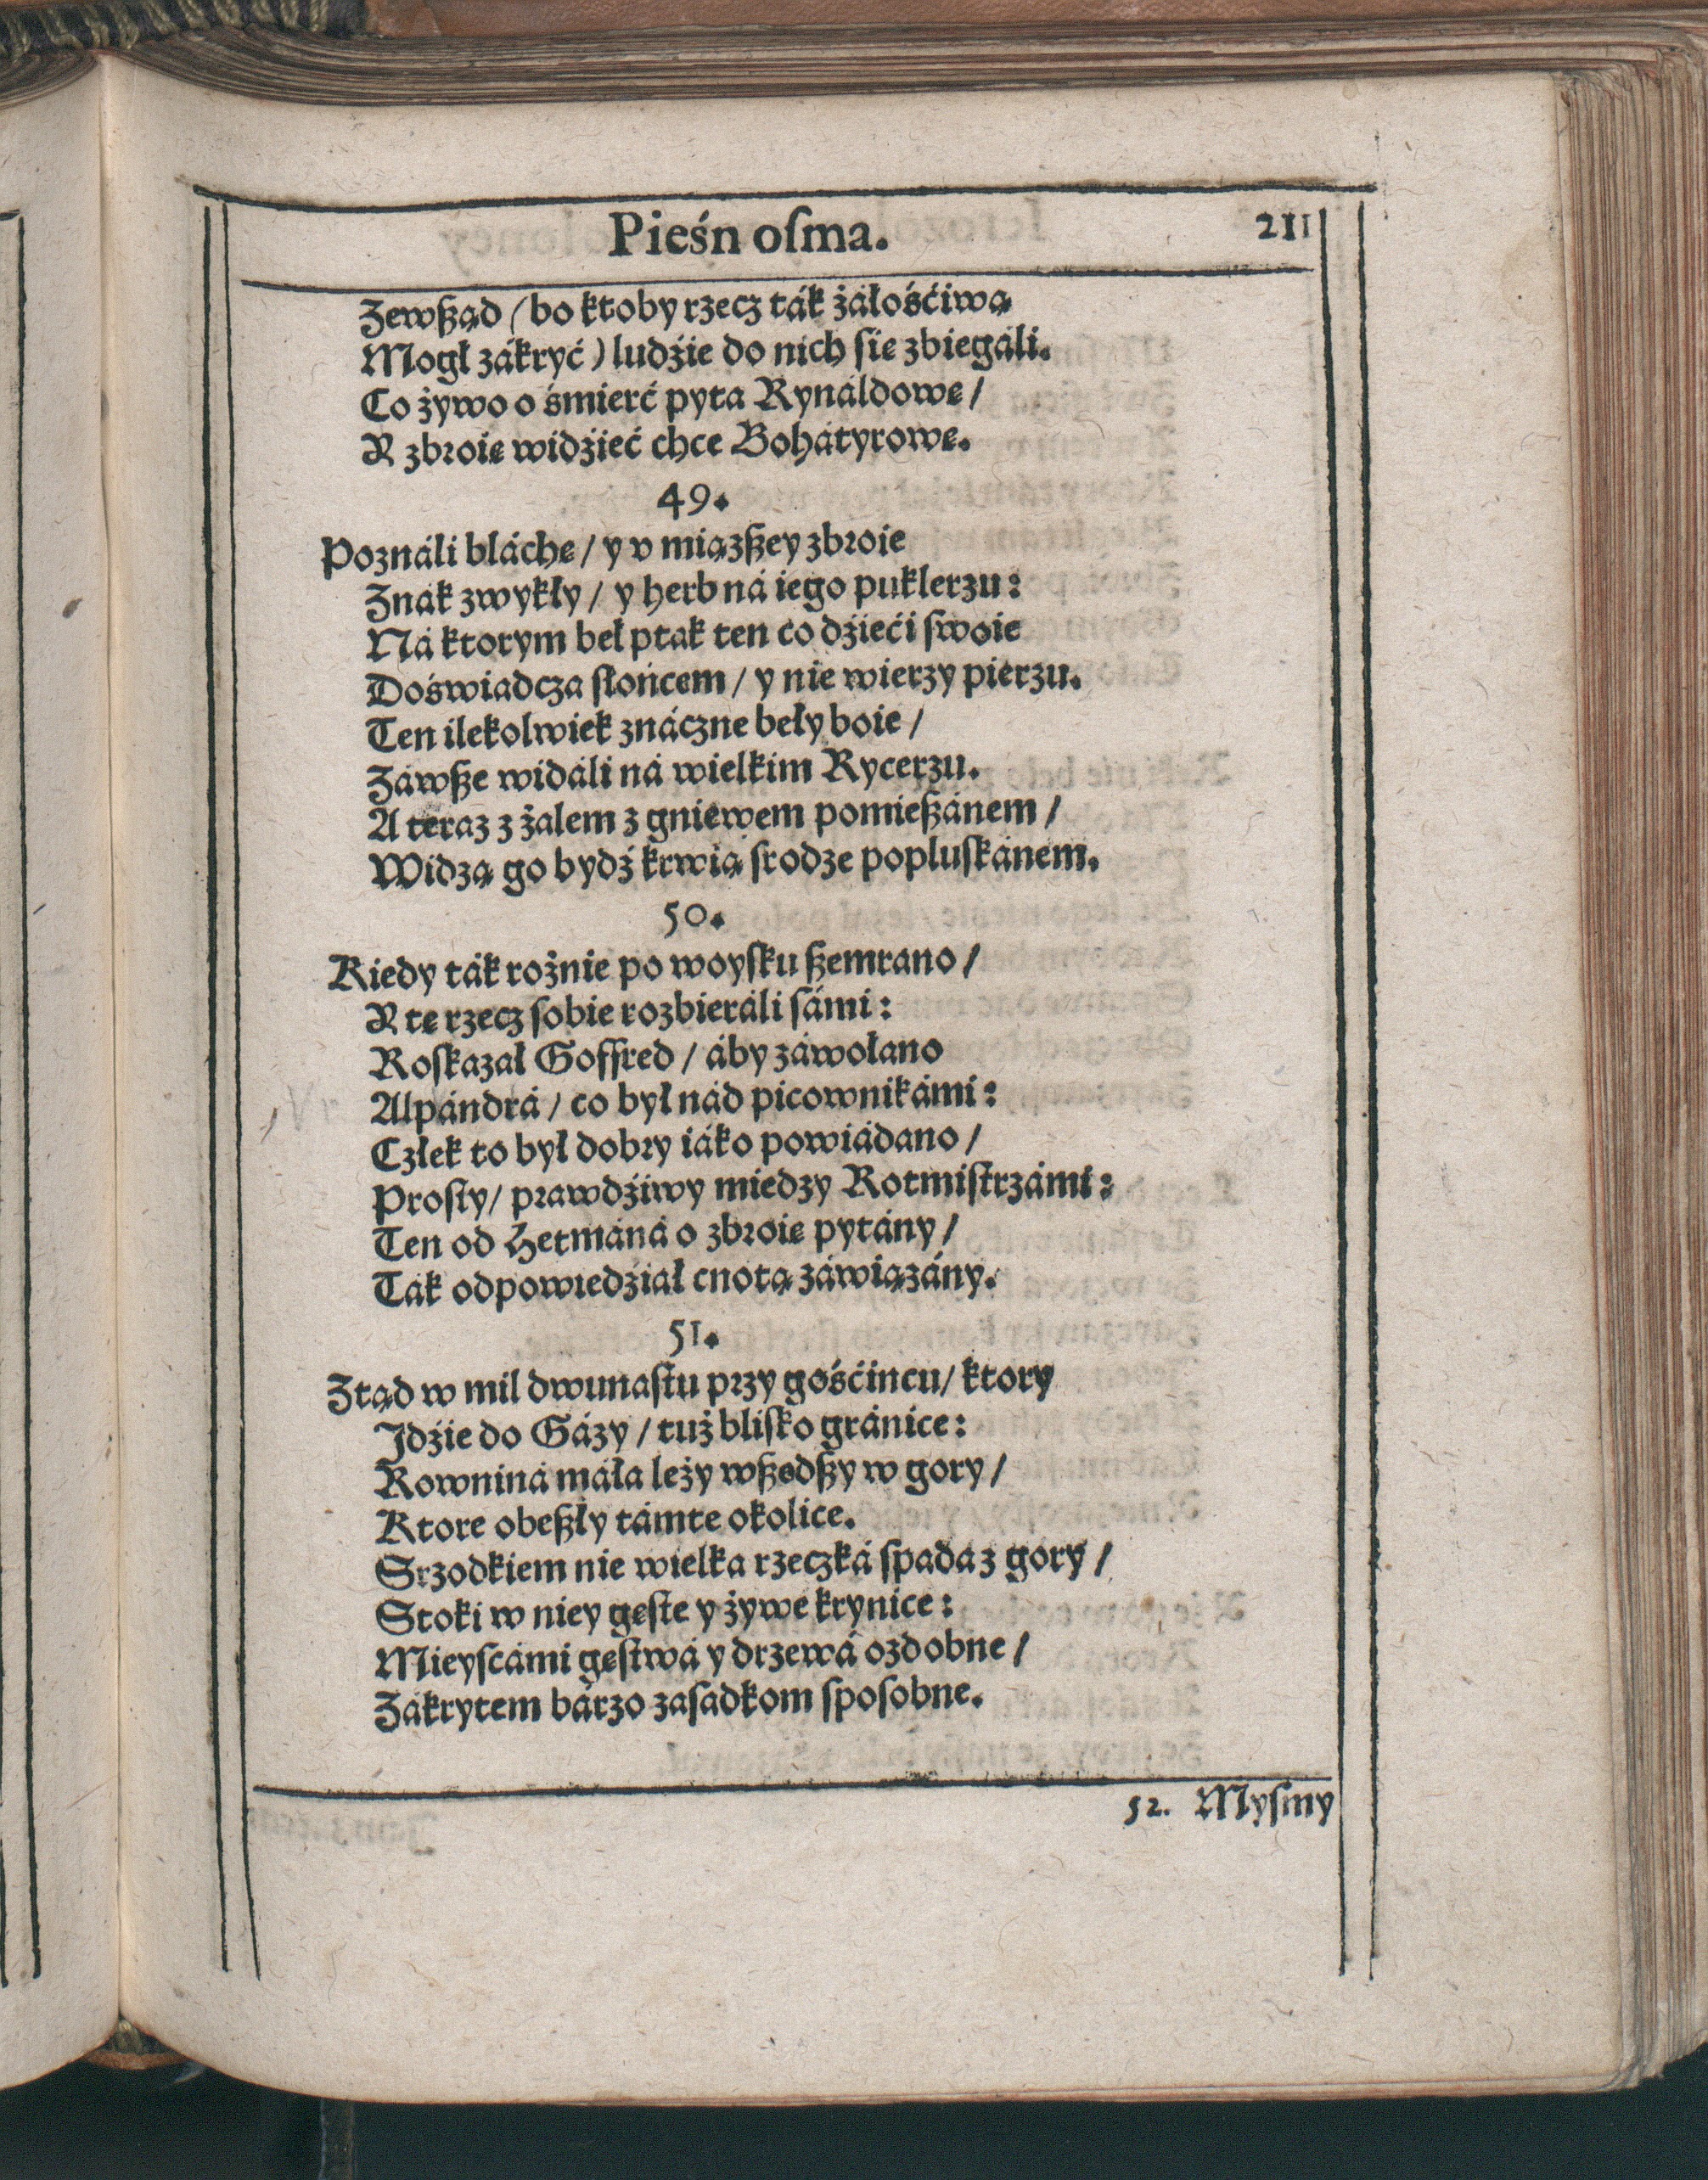 Pieśń oſma.
211
Zewßąd / bo ktoby rzecz ták żáłośćiwą
Mogł zákryć ) ludźie do nich ſie zbiegáli.
Co żywo o śmierć pyta Rynáldowę /
Y zbroię widźieć chce Bohátyrowę.
49.
Poználi bláchę / y v miążßey zbroie
Znák zwykły / y herb ná iego puklerzu:
Ná ktorym beł ptak ten co dźieći ſwoie
Doświadcza słońcem / y nie wierzy pierzu.
Ten ilekolwiek znáczne beły boie /
Záwße widáli ná wielkim Rycerzu.
A teraz z żalem z gniewem pomießánem /
Widzą go bydź krwią srodze popluſkánem.
50.
Kiedy ták rożnie po woyſku ßemrano /
Y tę rzecz ſobie rozbieráli ſámi:
Roſkazał Goffred / áby záwołano
Alpándrá / co był nád picownikámi:
Człek to był dobry iáko powiádano /
Prosty / prawdźiwy miedzy Rotmistrzámi:
Ten od Hetmáná o zbroię pytány /
Ták odpowiedźiał cnotą záwiązány.
51.
Ztąd w mil dwunastu przy gośćińcu / ktory
Idźie do Gázy / tuż bliſko gránice:
Rowniná máła leży wßedßy w gory /
Ktore obeßły támte okolice.
Srzodkiem nie wielka rzeczká ſpada z gory /
Stoki w niey gęste y żywe krynice:
Mieyſcámi gęstwá y drzewá ozdobne /
Zákrytem bárzo zaſadkom ſpoſobne.
52. Myſmy